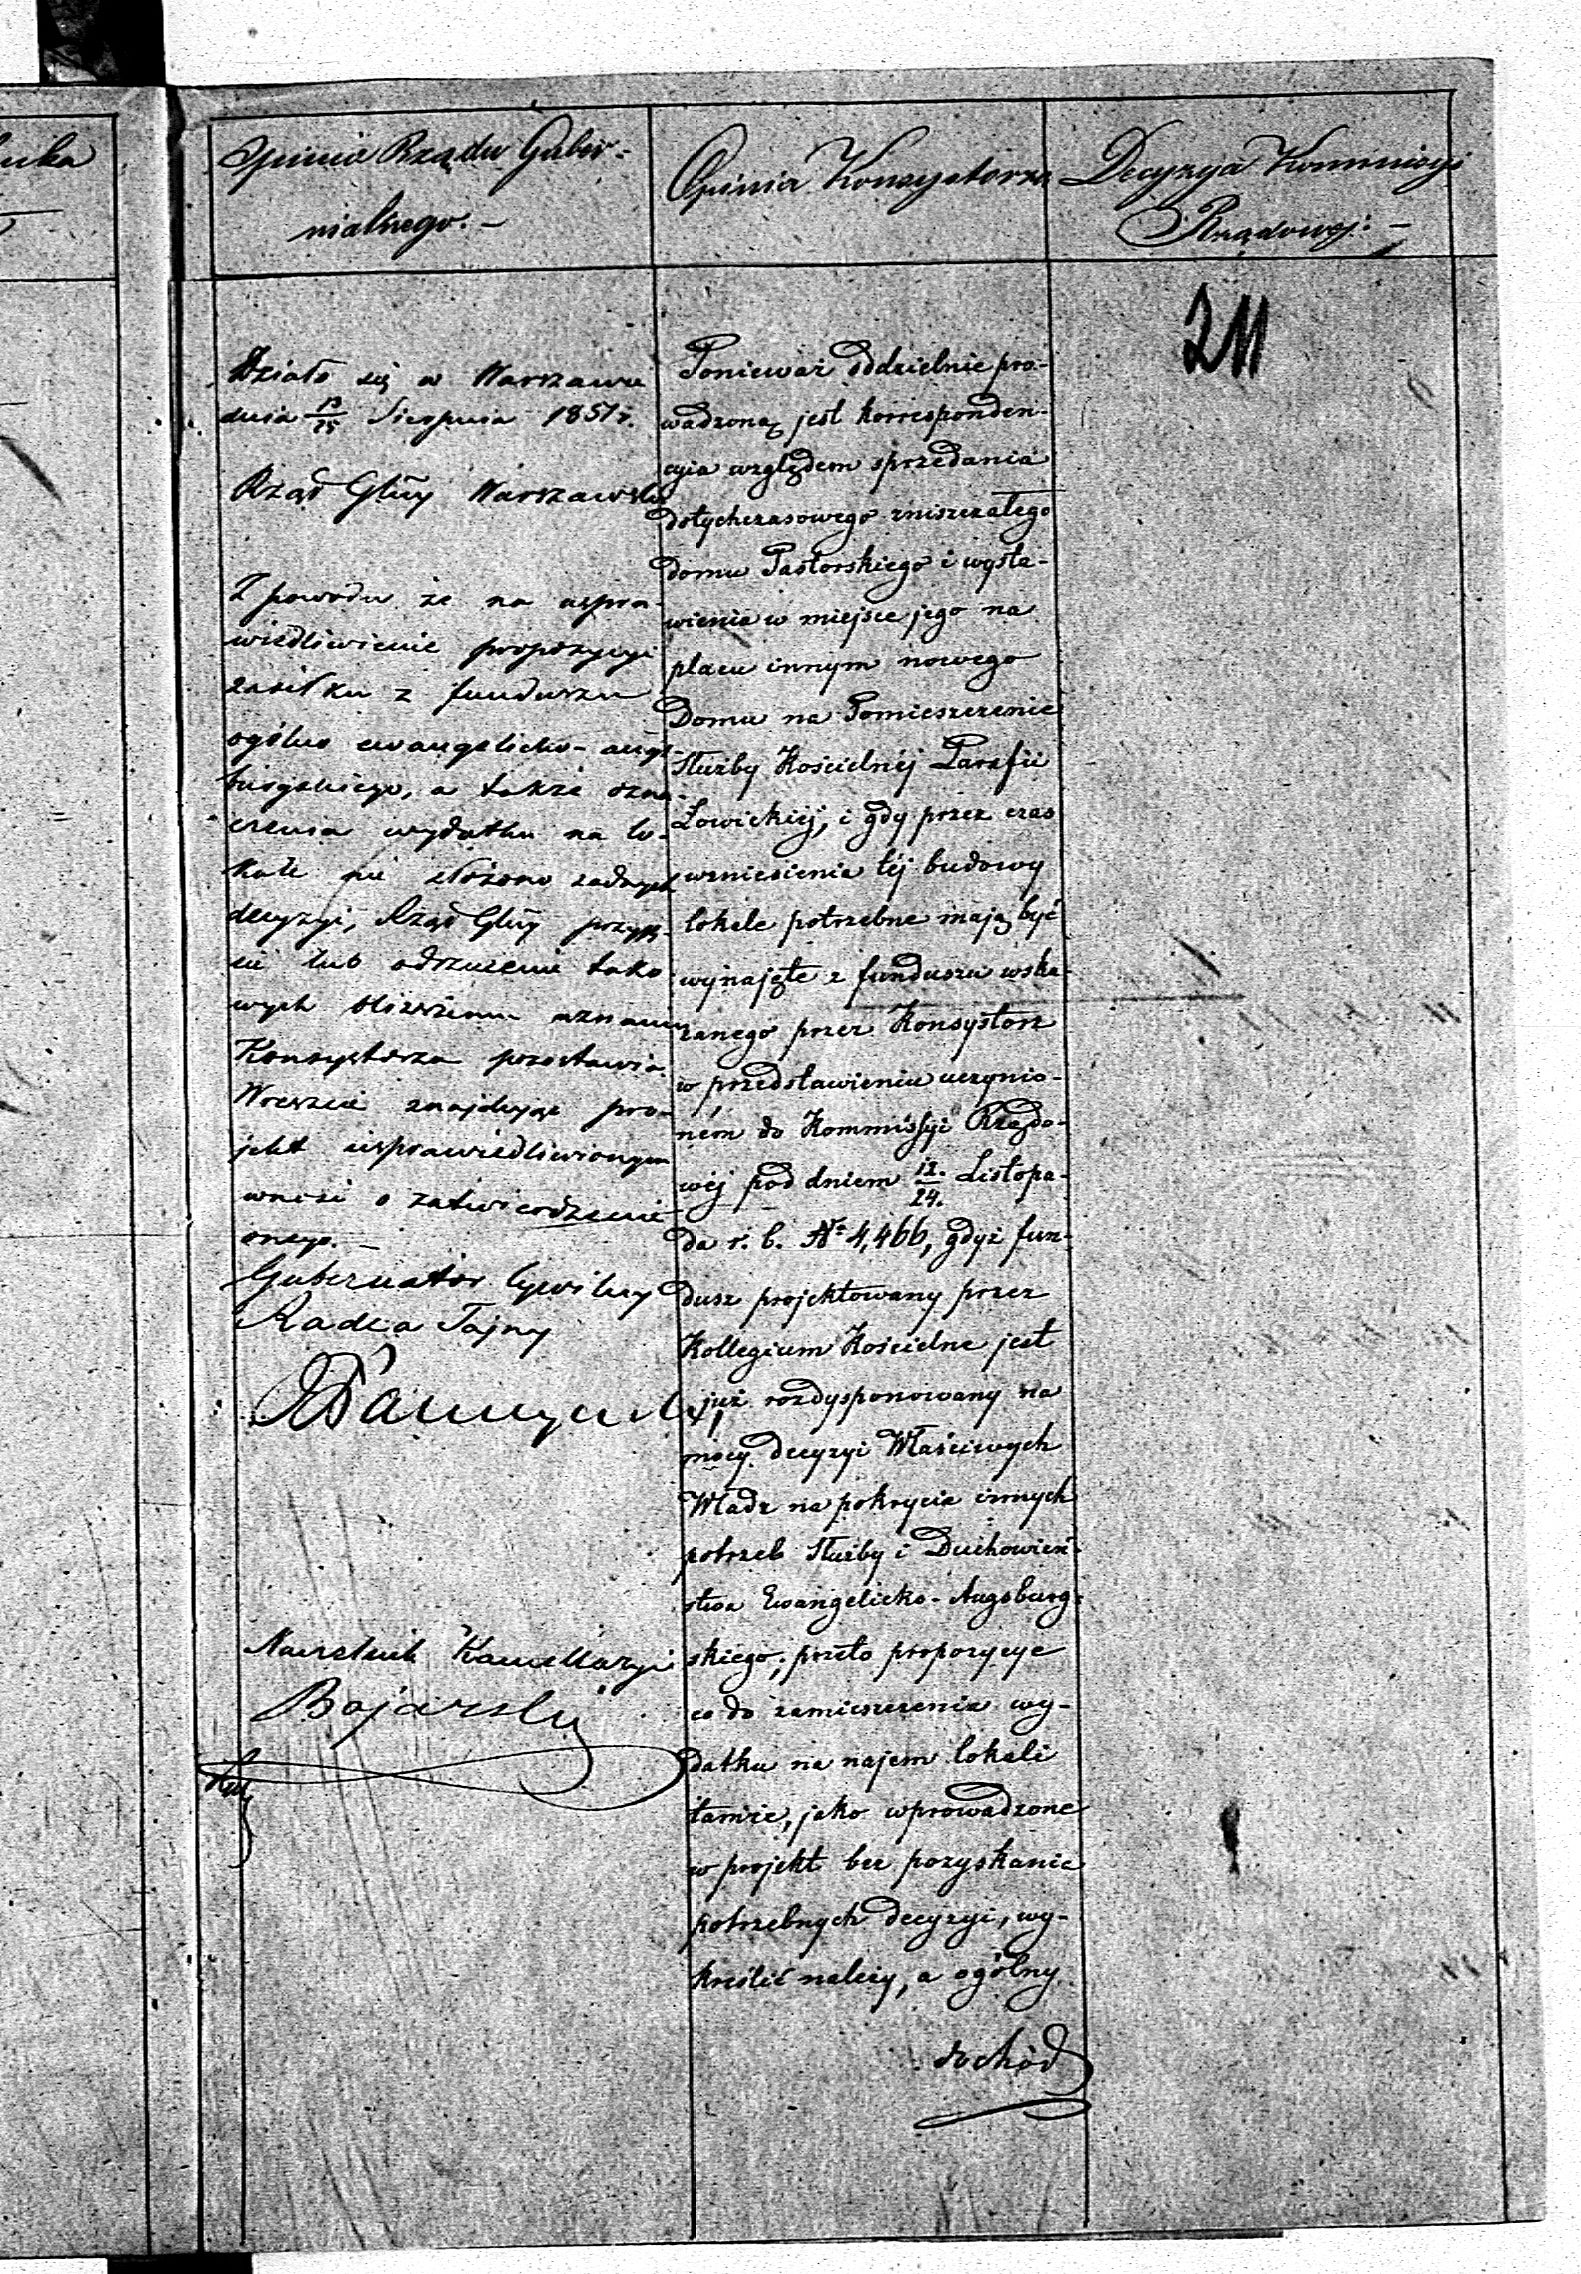 Opinia Rządu Guber-
nialnego. –
Działo się w Warszawie
dnia 13/25 Sierpnia 1851 r.
Rząd Glny Warszawski
Z powodu że na uspra-
wiedliwienie propozycyi
zasiłku z funduszu
ogólno ewangelicko-augs-
burgskiego, a także ozna-
czenia wydatku na lo-
kale nie złożono żadnych
decyzyi, Rząd Glny przyję-
cie lub odrzucenie tako-
wych bliższemu uznaniu
Konsystorza pozostawia.
Wreszcie znajdując pro-
jekt usprawiedliwionym
wnosi o zatwierdzenie
onego. –
Gubernator Cywilny
Radca Tajny
Naczelnik Kancellaryi
Bojarski
Opinia Konsystorza
Ponieważ oddzielnie pro-
wadzoną jest korresponden-
cyia względem sprzedania
dotychczasowego zniszczałego
domu Pastorskiego i wysta-
wienia w miejsce jego na
placu innym nowego
Domu na Pomieszczenie
Służby Kościelnéj Parafii
Łowickiéj, i gdy przez czas
wzniesienia téj budowy
lokale potrzebne mają być
wynajęte z funduszu wska-
zanego przez Konsystorz
w przedstawieniu uczynio-
ném do Kommissyi Rządo-
wéj pod dniem 12./24. Listopa-
da r. b. No 4,466, gdyż fun-
dusz projektowany przez
Kollegium Kościelne jest
już rozdysponowany na
mocy decyzyi Właściwych
Władz na pokrycie innych
potrzeb Służby i Duchowień-
stwa Ewangelicko-Augsburg-
skiego; przeto propozycye
co do zamieszczenia wy-
datku na najem lokali
tamże, jako wprowadzone
w projekt bez pozyskania
potrzebnych decyzyi, wy-
kreślić należy, a ogólny
dochód
Decyzya Kommissyi
Rządowej: –
211